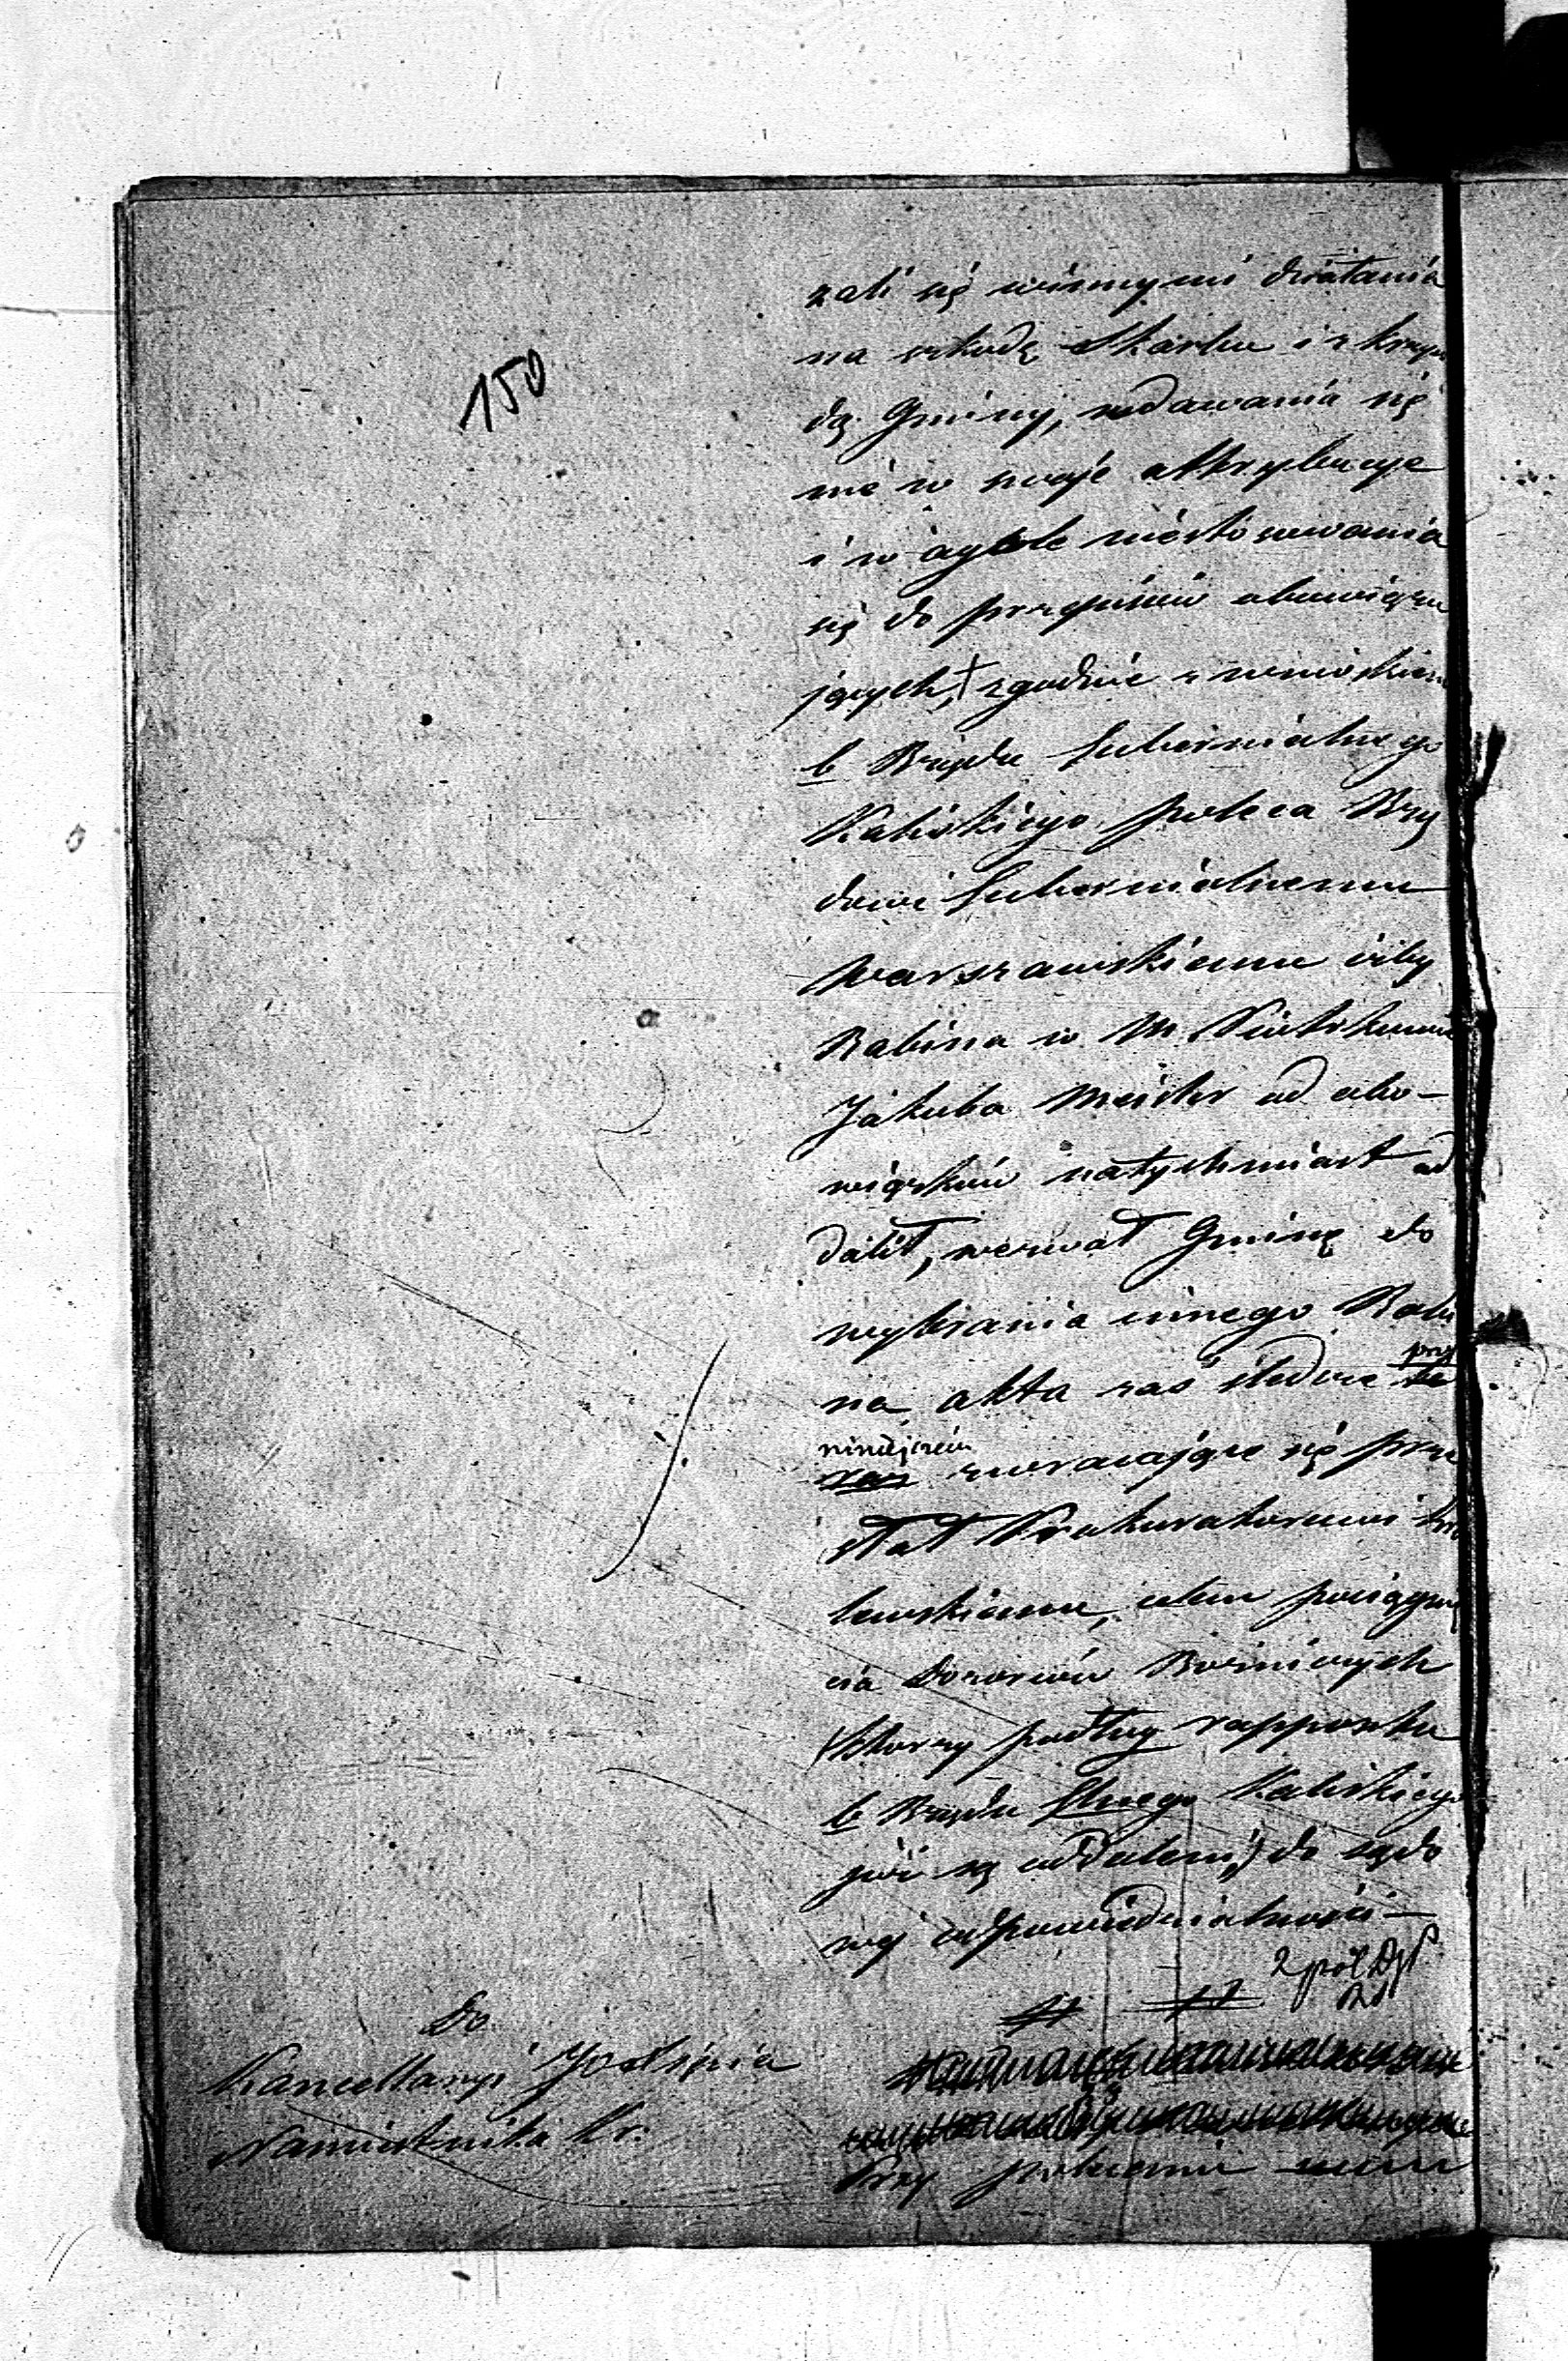 150
zali się winnymi działania
na szkodę Skarbu i z krzyw
dą Gminy, wdawania się
nie w swoje attrybucye
i w ogóle niestosowania
się do przepisów obowiązu
jących, zgodnie z wnioskiem
b Rządu Gubernialnego
Kaliskiego poleca Rzą
dowi Gubernialnemu
Warszawskiemu iżby
Rabina w M. Piątkowie
Jakuba Meister od obo-
wiązków natychmiast od
dalił, wezwał Gminę do
wybrania innego Rabi
na, akta zaś śledcze przy
niniejszém zwracające się prze
słał Prokuratorowi Kró
lewskiemu, celem pociągnię
cia Dozorców Bożniczych
(którzy podług rapportu
b Rządu Głnego Kaliskiego
już są oddaleni,) do sądo
wéj odpowiedzialności —
2 pół
Do
Kancellaryi JO Xięcia
Namiestnika Kr.
Przy